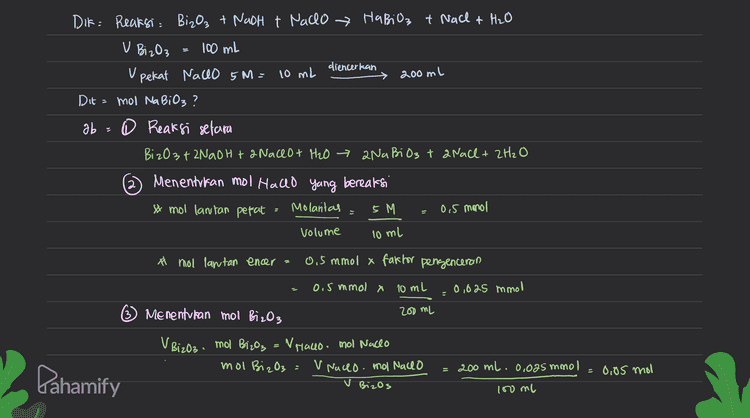 Dik : Reaksi : Bi₂O₃ + NaOH + NaClO → NaBiO₃ + NaCl + H₂O
V Bi₂O₃ = 100 mL
V pekat NaClO 5 M = 10 mL diencerkan → 200 mL
Dit = mol NaBiO₃ ?
Jb = ① Reaksi setara
Bi₂O₃ + 2NaOH + 2NaClO + H₂O → 2NaBiO₃ + 2NaCl + 2H₂O
② Menentukan mol NaClO yang bereaksi
* mol larutan pekat = Molaritas / Volume = 5 M / 10 mL = 0,5 mmol
* mol larutan encer = 0,5 mmol x faktor pengenceran
= 0,5 mmol x 10 mL / 200 mL = 0,025 mmol
③ Menentukan mol Bi₂O₃
V Bi₂O₃ . mol Bi₂O₃ = V NaClO . mol NaClO
mol Bi₂O₃ = V NaClO . mol NaClO / V Bi₂O₃ = 200 mL . 0,025 mmol / 100 mL = 0,05 mol
Pahamify